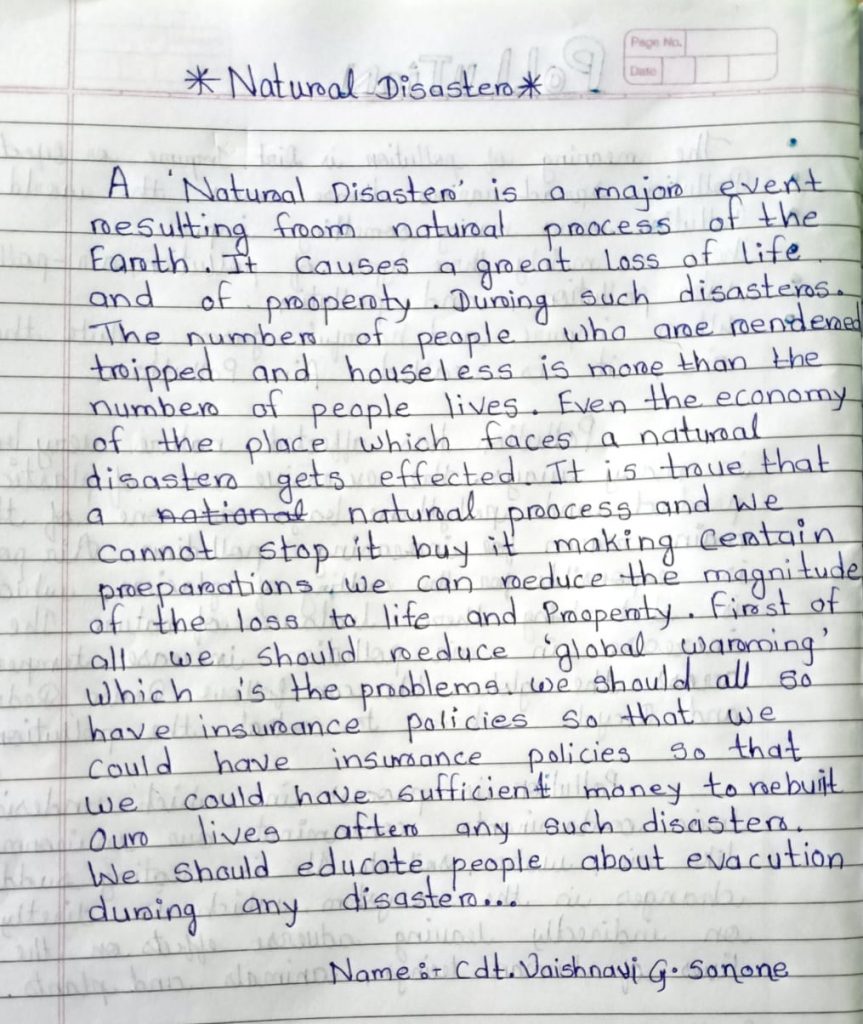 Page No.
Date
* Natural Disaster *
A 'Natural Disaster' is a major event
resulting from natural process of the
Earth. It causes a great loss of life
and of property. During such disasters.
The number of people who are rendered
tripped and houseless is more than the
number of people lives. Even the economy
of the place which faces a natural
disaster gets effected. It is true that
a national natural process and we
cannot stop it buy it making certain
preparations we can reduce the magnitude
of the loss to life and Property. First of
all we should reduce 'global warming'
which is the problems. we should all so
have insurance policies so that we
could have insurance policies so that
we could have sufficient money to rebuit
our lives after any such disaster.
We should educate people about evacution
during any disaster...
Name :- Cdt. Vaishnavi G. Sonone